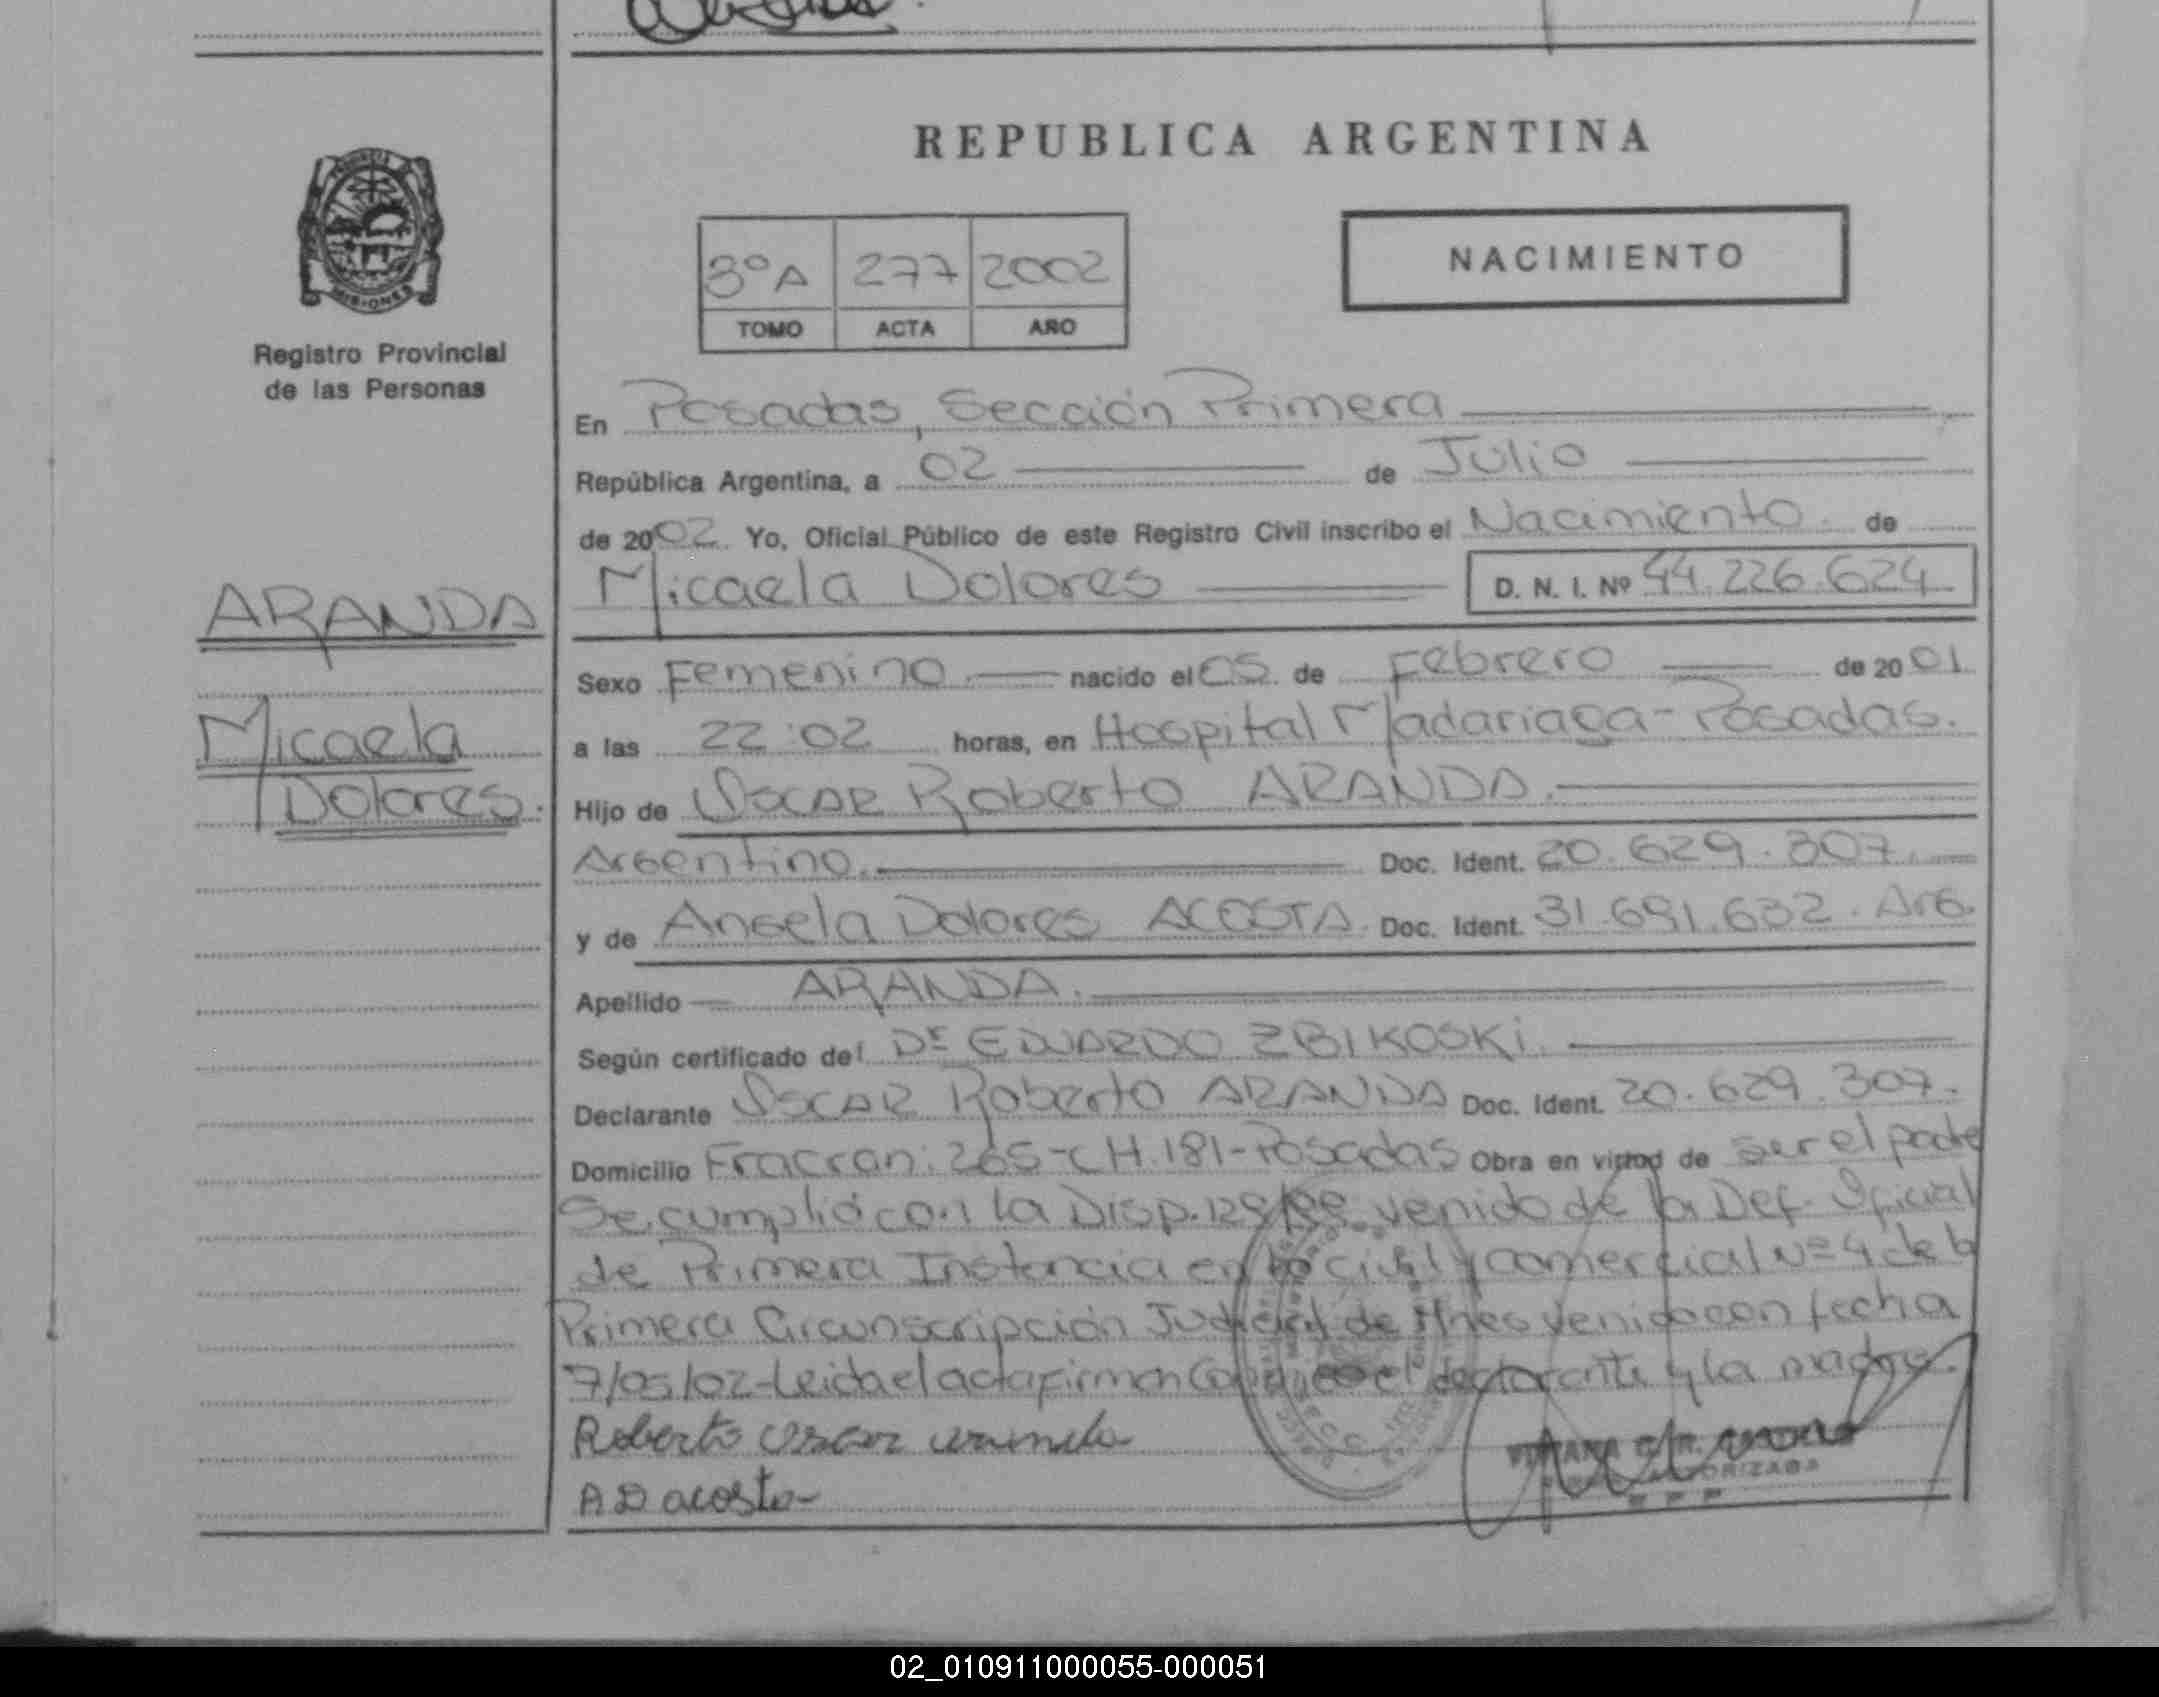 REPUBLICA ARGENTINA
NACIMIENTO
3º A 277 2002
TOMO ACTA AÑO
MISIONES
Registro Provincial
de las Personas
ARANDA
Micaela
Dolores.
En Posadas, Sección Primera
República Argentina, a 02 de Julio
de 2002 Yo, Oficial Público de este Registro Civil inscribo el Nacimiento de
Micaela Dolores D. N. I. Nº 44.226.624
Sexo Femenino nacido el 05 de Febrero de 2001
a las 22:02 horas, en Hospital Madariaga - Posadas.
Hijo de Oscar Roberto ARANDA.
Argentino. Doc. Ident. 20.629.307.
y de Angela Dolores ACOSTA. Doc. Ident. 31.691.632. Arg.
Apellido ARANDA.
Según certificado del Dr EDUARDO ZBIKOSKI.
Declarante OSCAR Roberto ARANDA Doc. Ident. 20.629.307.
Domicilio Fracran: 265-CH.181-Posadas Obra en virtud de ser el padre
Se cumplió con la Disp. venido de la Def. Oficial
de Primera Instancia en lo civil y comercial Nº 4 de la
Primera Circunscripción Judicial de Mnes venido con fecha
7/05/02-Leida el acta firman Conmigo el declarante y la madre.
Roberto Oscar Aranda
A D acosta
AUTORIZADA
02_010911000055-000051